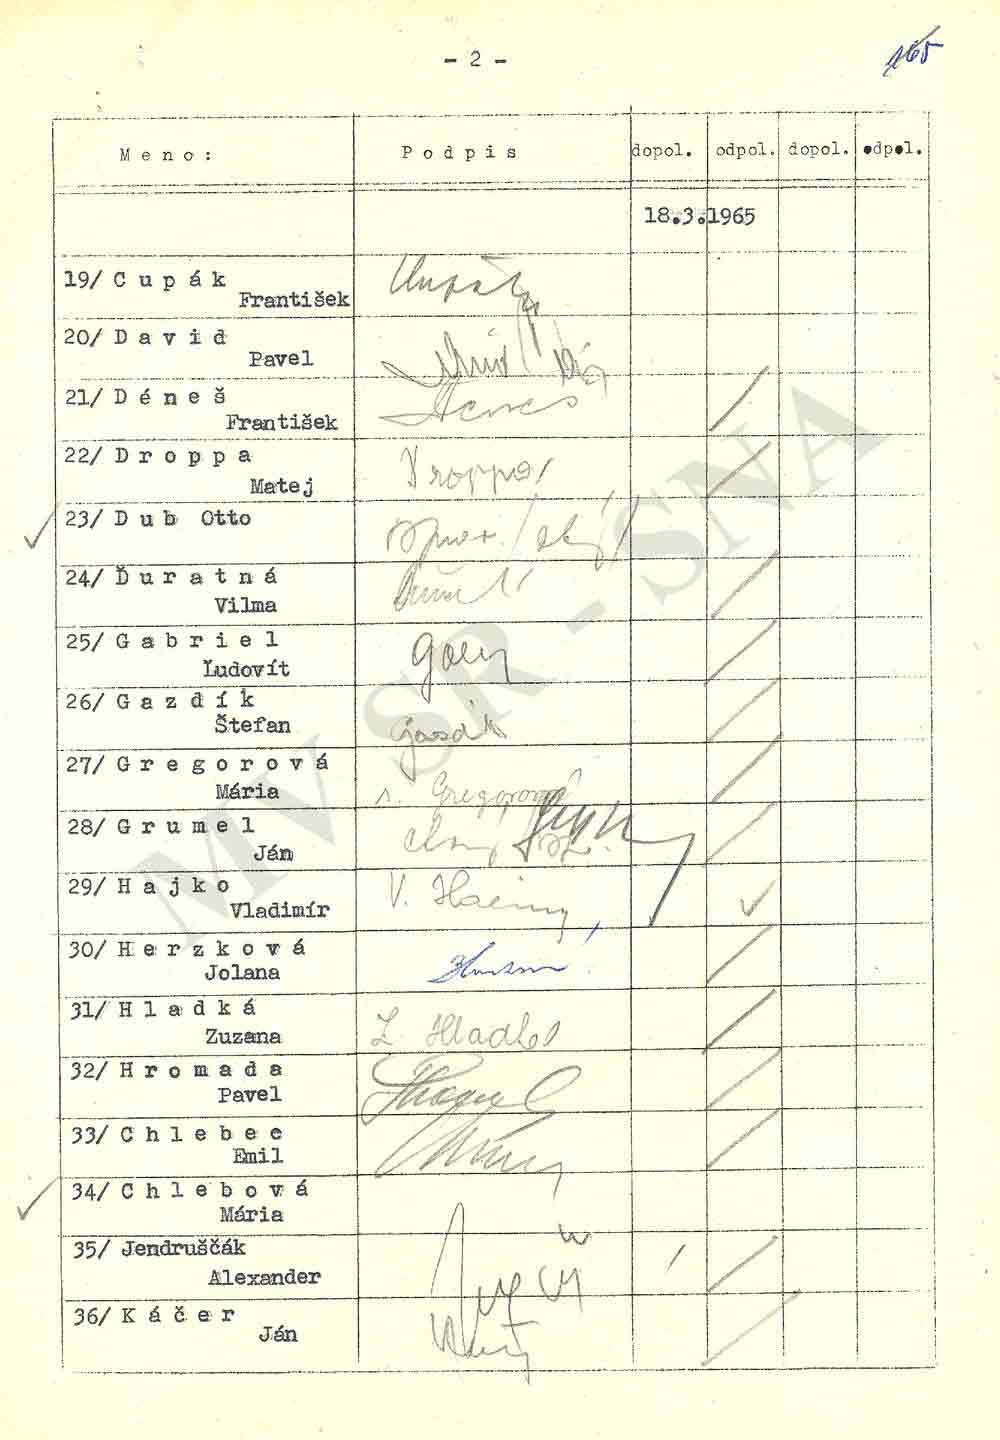 - 2 -
165
Meno: Podpis dopol. odpol. dopol. odpol.
18.3.1965
19/ Cupák
František
20/ David
Pavel
21/ Déneš
František
22/ Droppa
Matej
Droppa
23/ Dub Otto
24/ Ďuratná
Vilma
25/ Gabriel
Ľudovít
26/ Gazdík
Štefan
Gazdík
27/ Gregorová
Mária
Gregorová
28/ Grumel
Ján
29/ Hajko
Vladimír
V.
30/ Herzková
Jolana
31/ Hladká
Zuzana
Z. Hladká
32/ Hromada
Pavel
33/ Chlebec
Emil
34/ Chlebová
Mária
35/ Jendruščák
Alexander
36/ Káčer
Ján
MV SR - SNA